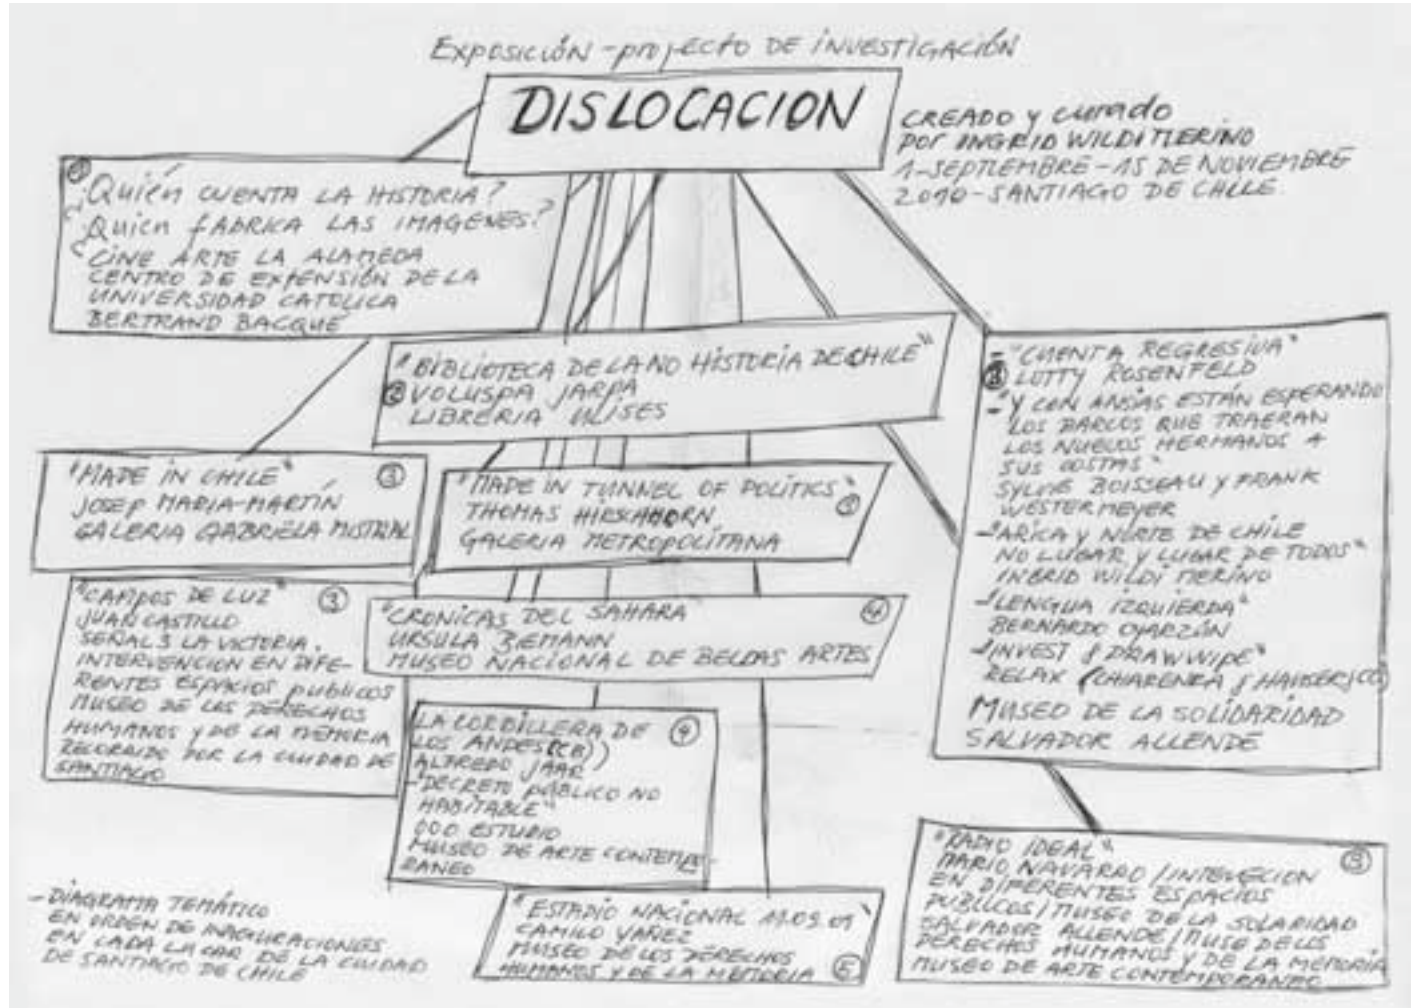 EXPOSICIÓN - proyECTO DE INVESTIGACIÓN
DISLOCACION
CREADO y curado
por INGRID WILDI MERINO
1-SEPTIEMBRE-15 DE NOVIEMBRE
2010-SANTIAGO DE CHILE
¿Quién CUENTA LA HISTORIA?
¿Quien fABRICA LAS IMAGENES?
CINE ARTE LA ALAMEDA
CENTRO DE EXTENSIÓN DE LA
UNIVERSIDAD CATOLICA
BERTRAND BACQUÉ
"BIBLIOTECA DE LA NO HISTORIA DE CHILE"
② VOLUSPA JARPA
LIBRERIA ULISES
"MADE IN CHILE" ③
JOSEP MARIA-MARTÍN
GALERIA GABRIELA MISTRAL
"MADE IN TUNNEL OF POLITICS"
THOMAS HIRSCHHORN
GALERIA METROPOLITANA
"CAMPOS DE LUZ" ③
JUAN CASTILLO
SEÑAL 3 LA VICTORIA.
INTERVENCION EN DIFE-
RENTES ESPACIOS publicos
MUSEO DE LOS DERECHOS
HUMANOS y DE LA MEMORIA
RECORRIDO POR LA CIUDAD DE
SANTIAGO
"CRONICAS DEL SAHARA" ④
URSULA BIEMANN
MUSEO NACIONAL DE BELLAS ARTES
LA CORDILLERA DE ④
LOS ANDES (CB)
ALFREDO JAAR
-"DECRETO PÚBLICO NO
HABITABLE"
OOO ESTUDIO
MUSEO DE ARTE CONTEMPO-
RANEO
"ESTADIO NACIONAL 11.09.09"
CAMILO YAÑEZ
MUSEO DE LOS DERECHOS
HUMANOS y DE LA MEMORIA ⑤
-"CUENTA REGRESIVA"
③ LOTTY ROSENFELD
-"Y CON ANSIAS ESTÁN ESPERANDO
LOS BARCOS QUE TRAERAN
LOS NUEVOS HERMANOS A
SUS COSTAS"
SYLVIE BOISSEAU y FRANK
WESTERMEYER
-"ARICA y NORTE DE CHILE
NO LUGAR y LUGAR DE TODOS"
INGRID WILDI MERINO
-"LENGUA IZQUIERDA"
BERNARDO OYARZÚN
-"INVEST & DRAWWIPE"
RELAX (CHIARENZA & HAUSER & CO)
MUSEO DE LA SOLIDARIDAD
SALVADOR ALLENDE
"RADIO IDEAL" ③
MARIO NAVARRO /INTEVECION
EN DIFERENTES ESPACIOS
PUBLICOS/MUSEO DE LA SOLARIDAD
SALVADOR ALLENDE/MUSE DE LOS
DERECHOS HUMANOS y DE LA MEMORIA
MUSEO DE ARTE CONTEMPORANEO
- DIAGRAMA TEMÁTICO
EN ORDEN DE INAGURACIONES
EN CADA LUGAR DE LA CIUDAD
DE SANTIAGO DE CHILE